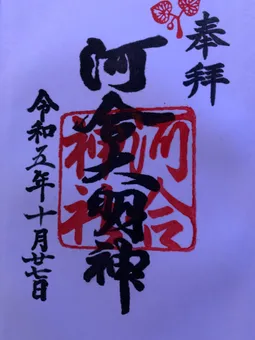 奉拝
河合大明神
河合
神社
令和五年十月廿七日